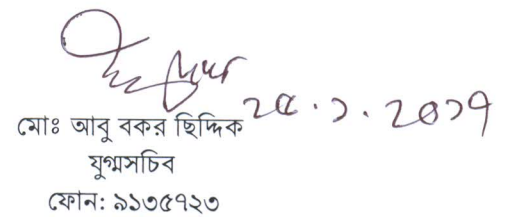 ২৫.১.২০১৭
মোঃ আবু বকর ছিদ্দিক
যুগ্মসচিব
ফোন: ৯১৩৫৭২৩